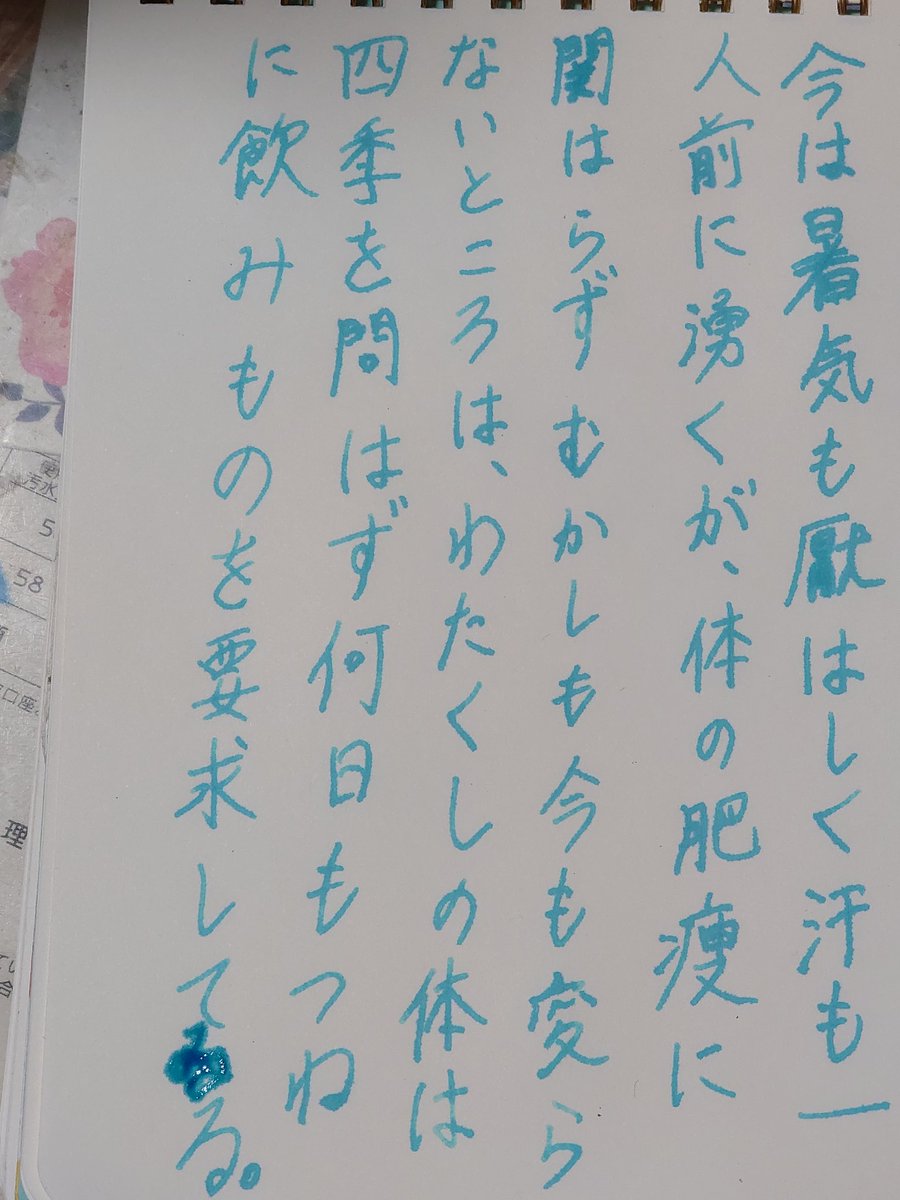 今は暑気も厭はしく汗も一
人前に湧くが、体の肥痩に
関はらずむかしも今も変ら
ないところは、わたくしの体は
四季を問はず何日もつね
に飲みものを要求してる。
汚水
5
58
口座
理
合